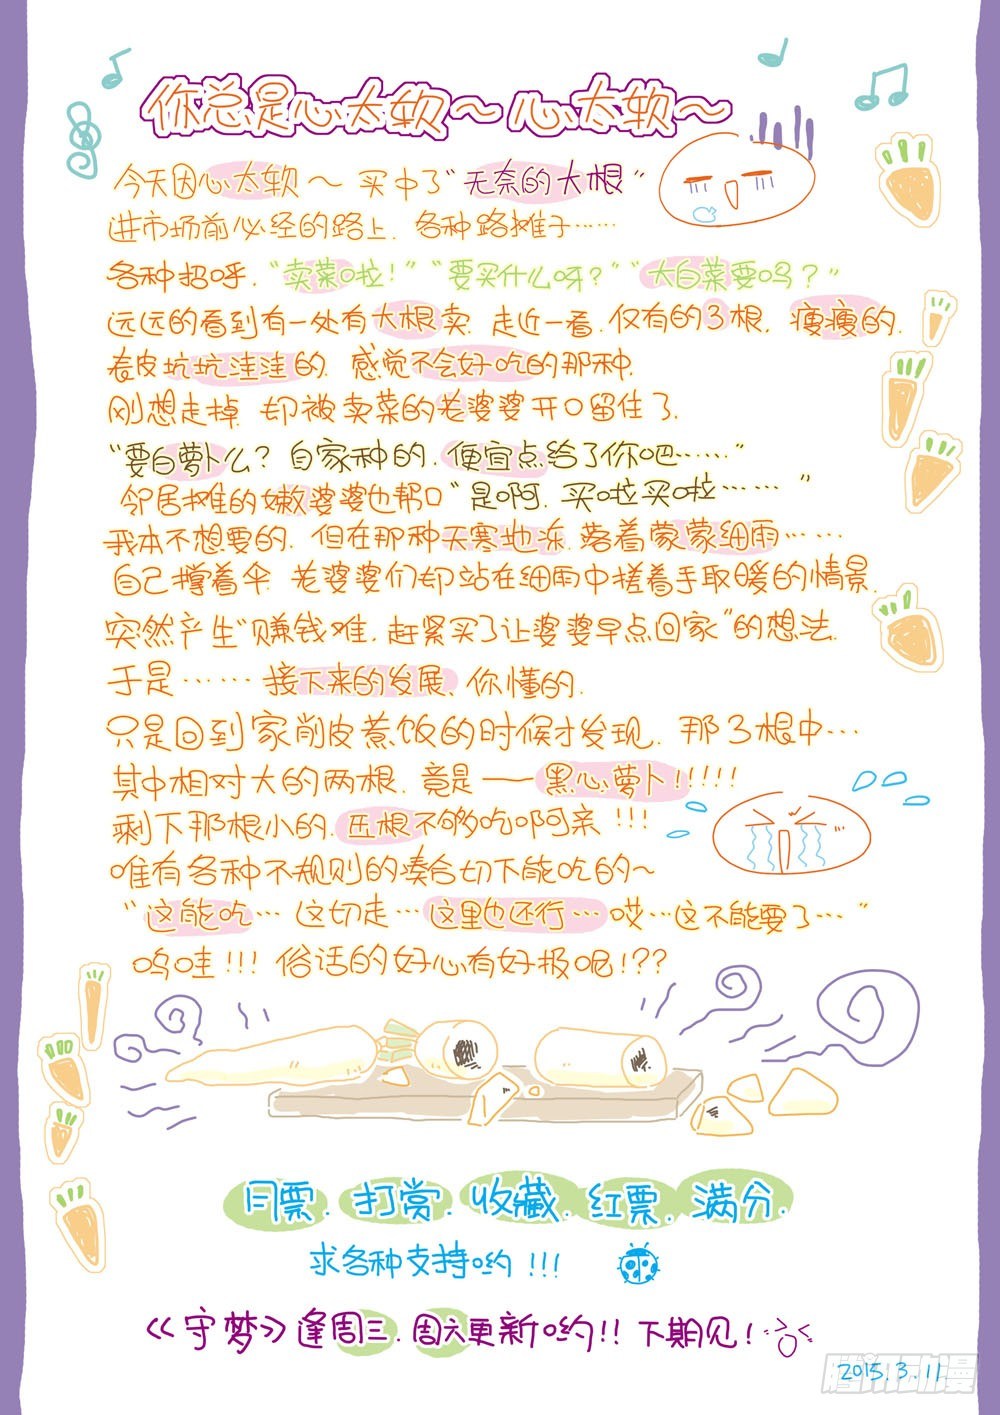 你总是心太软～心太软～
今天因心太软～ 买中了“无奈的大根”
进市场前必经的路上. 各种路摊子……
各种招呼. “卖菜啦!” “要买什么呀?” “大白菜要吗?”
远远的看到有一处有大根卖. 走近一看. 仅有的3根, 瘦瘦的.
表皮坑坑洼洼的. 感觉不会好吃的那种.
刚想走掉. 却被卖菜的老婆婆开口留住了.
“要白萝卜么? 自家种的. 便宜点给了你吧……”
邻居摊的嫩婆婆也帮口“是啊. 买啦买啦……”
我本不想要的. 但在那种天寒地冻. 落着蒙蒙细雨……
自己撑着伞. 老婆婆们却站在细雨中搓着手取暖的情景.
突然产生“赚钱难. 赶紧买了让婆婆早点回家”的想法.
于是…… 接下来的发展、你懂的.
只是回到家削皮煮饭的时候才发现. 那3根中…
其中相对大的两根. 竟是——黑心萝卜!!!!!
剩下那根小的. 压根不够吃啊亲!!!
唯有各种不规则的凑合切下能吃的～
“这能吃… 这切走… 这里也还行… 哎…这不能要了…”
呜哇!!! 俗话的好心有好报呢!??
月票. 打赏. 收藏. 红票. 满分.
求各种支持哟!!!
《守梦》逢周三. 周六更新哟!! 下期见!
2015.3.11
腾讯动漫